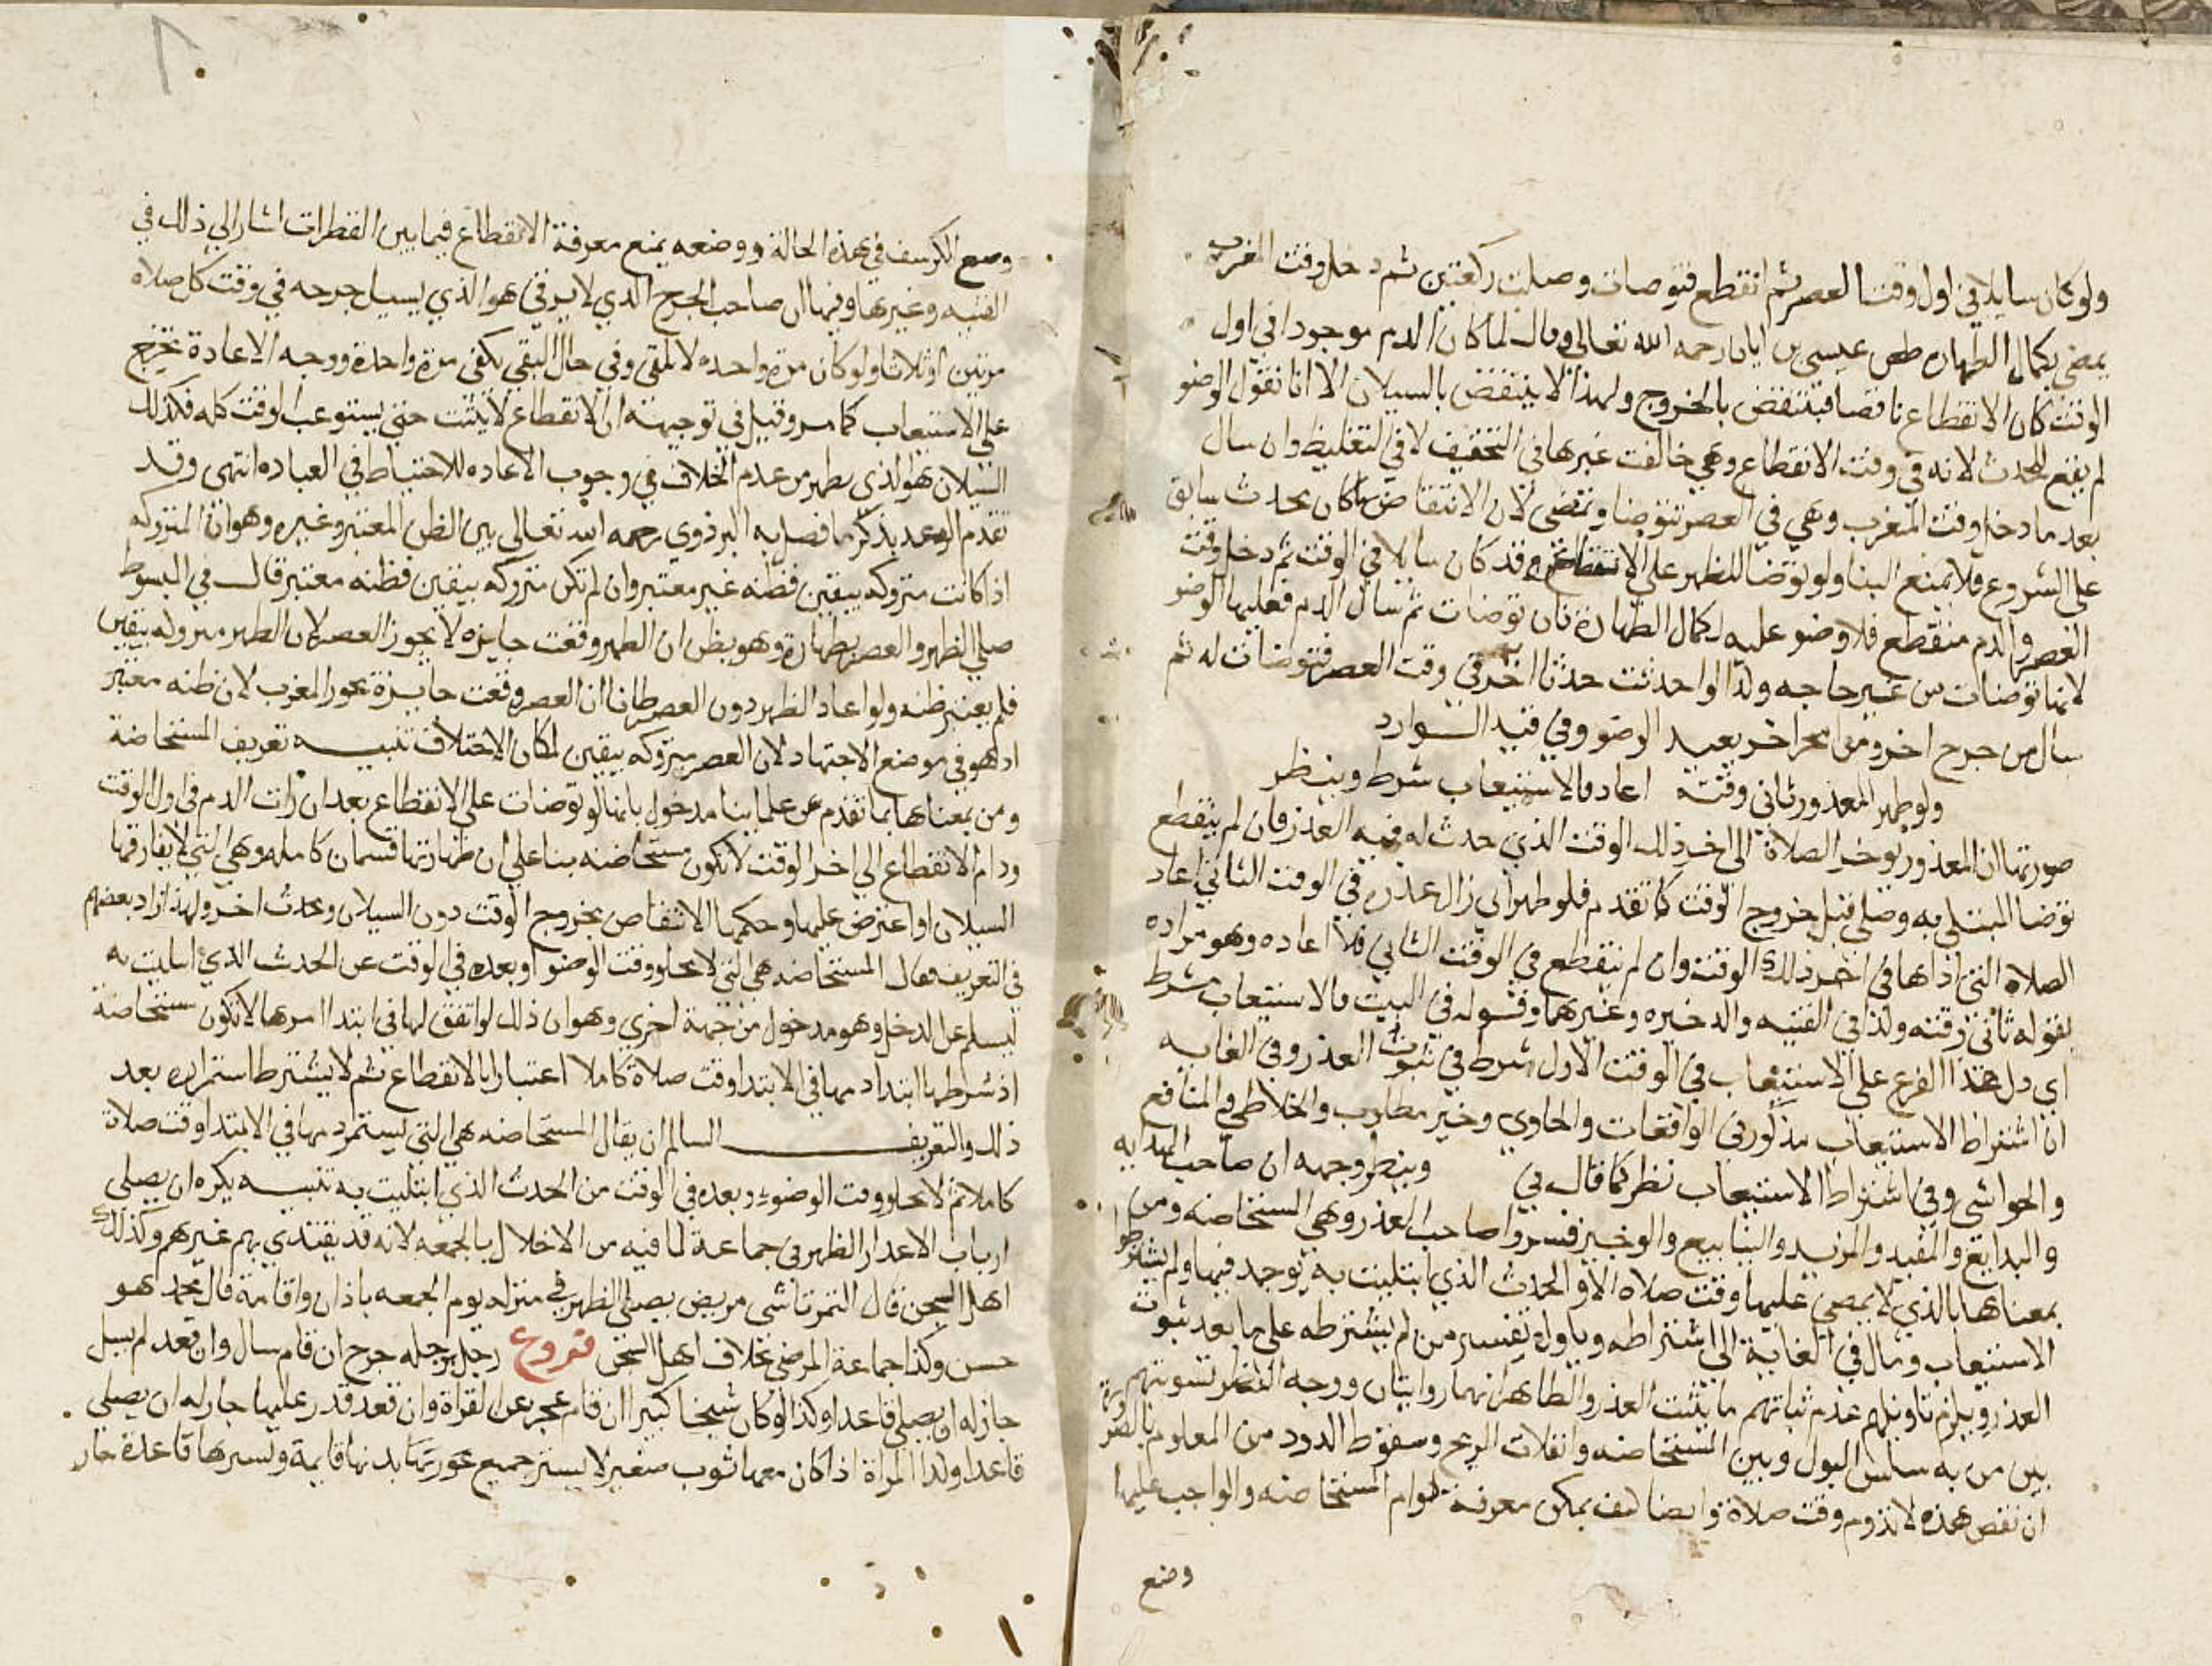 ولو كان سايلا في اول وقت العصر ثم انقطع فتوضات وصلت ركعتين ثم دخل وقت المغرب
يمضي بكمال الطهاره عيسى بن ابان رحمه الله تعالى وقال لما كان الدم موجودا في اول
الوقت كان الانقطاع ناقصا فينتقض بالخروج ولهذا لا ينتقض بالسيلان الا انا نقول الوضو
لم يقع للحدث لانه في وقت الانقطاع وهي خالفت غيرها في التخفيف لا في التغليظ وان سال
بعد ما دخل وقت المغرب وهي في العصر تتوضا وتمضى لان الانتقاض كان بحدث سابق
على الشروع فلا يمنع البنا ولو توضا للظهر على الانقطاع وقد كان سايلا في الوقت ثم دخل وقت
العصر والدم منقطع فلا وضو عليه لكمال الطهارة فان توضات ثم سال الدم فعليها الوضو
لانها توضات من غير حاجه ولذا لو احدثت حدثا اخر في وقت العصر فتوضات له ثم
سال من جرح اخر ومن منخر اخر يعيد الوضو وفي قيد الشوارد
ولو طهر المعذور ثاني وقته اعاد فالاستيعاب شرط وينظر
صورتها ان المعذور يوخر الصلاة الى اخر ذلك الوقت الذي حدث له فيه العذر فان لم ينقطع
توضا المبتلى به وصلى قبل خروج الوقت كما تقدم فلو طهر اي زال عذره في الوقت الثاني اعاد
الصلاه التي اداها في اخر ذلك الوقت وان لم ينقطع في الوقت الثاني فلا اعاده وهو مراده
بقوله ثاني وقته ولذا في القنيه والذخيره وغيرهما وقوله في البيت فالاستيعاب شرط
اي دل هذا الفرع على الاستيعاب في الوقت الاول شرط في ثبوت العذر وفي الغايه
ان اشتراط الاستيعاب مذكور في الواقعات والحاوي وخير مطلوب والخلاطي والمنافع
والحواشي وفي اشتراط الاستيعاب نظر كما قال في وينظر وجهه ان صاحب الهدايه
والبدايع والمفيد والمزيد والينابيع والوجيز فسروا صاحب العذر وهي المستحاضه ومن
بمعناها بالذي لا يمضي عليها وقت صلاه الا والحدث الذي ابتليت به يوجد فيها ولم يشترطوا
الاستيعاب ومال في الغاية الى اشتراطه وياول تفسير من لم يشترطه على ما بعد ثبوت
العذر ويلزم تاويلهم عدم ثباتهم ما يثبت العذر والظاهر انهما روايتان ووجه النظر تسويتهم
بين من به سلس البول وبين المستحاضه وانفلات الريح وسقوط الدود من المعلوم بالضرورة
ان نقض هذه لا تدوم وقت صلاة وايضا كيف يمكن معرفة دوام المستحاضه والواجب عليها
وضع
وضع الكرسف في هذه الحالة ووضعه يمنع معرفة الانقطاع فيما بين القطرات اشار الى ذلك في
القنيه وغيرها وفيها ان صاحب الجرح الذي لا يرقى هو الذي يسيل جرحه في وقت كل صلاه
مرتين او ثلاثا ولو كان مرة واحده لا تلقى وفي حال البقي يكفى مرة واحدة ووجه الاعادة تخرج
على الاستيعاب كما مر وقيل في توجيهه ان الانقطاع لا يثبت حتى يستوعب الوقت كله فكذلك
السيلان هو الذي يظهر من عدم الخلاف في وجوب الاعاده للاحتياط في العباده انتهى وقد
تقدم الوعد بذكر ما فصل به البزدوي رحمه الله تعالى بين الظن المعتبر وغيره وهو ان المتروكه
اذا كانت متروكه بيقين فظنه غير معتبر وان لم تكن متروكه بيقين فظنه معتبر قال في المبسوط
صلى الظهر والعصر بطهارة وهو يظن ان الظهر وقعت جايزه لا يجوز العصر لان الظهر متروله بيقين
فلم يعتبر ظنه ولو اعاد الظهر دون العصر ظانا ان العصر وقعت جايزة يجوز المغرب لان ظنه معتبر
اذ هو في موضع الاجتهاد لان العصر متروكه بيقين لمكان الاختلاف تنبيه تعريف المستحاضة
ومن بمعناها بما تقدم عن علماينا مدخول بانها لو توضات على الانقطاع بعد ان رات الدم في اول الوقت
ودام الانقطاع الى اخر الوقت لا تكون مستحاضه بنا على ان طهارتها قسمان كامله وهي التي لا يقارقها
السيلان او اعترض عليها وحكمها الانتقاض بخروج الوقت دون السيلان وبحدث اخر ولهذا زاد بعضهم
في التعريف فقال المستحاضه هي التي لا يخلو وقت الوضو او بعده في الوقت عن الحدث الذي ابتليت به
ليسلم عن الدخل وهو مدخول من جهة اخري وهو ان ذلك لو اتفق لها في ابتدا امرها لا تكون مستحاضة
اذ شرطها ابتداد مها في الابتدا وقت صلاة كاملا اعتبارا بالانقطاع ثم لا يشترط استمراره بعد
ذلك والتعريف السالم ان يقال المستحاضه هي التي يستمر دمها في الابتدا وقت صلاة
كاملا ثم لا يخلو وقت الوضوء وبعده في الوقت من الحدث الذي ابتليت به تنبيه يكره ان يصلي
ارباب الاعذار الظهر في جماعة لما فيه من الاخلال بالجمعه لانه قد يقتدي بهم غيرهم وكذلك
اهل السجن قال التمرتاشي مريض يصلي الظهر في منزله يوم الجمعه باذان واقامة قال محمد هو
حسن وكذا جماعة المرضى بخلاف اهل السجن فروع رجل برجله جرح ان قام سال وان قعد لم يسل
جاز له ان يصلي قاعدا وكذا لو كان شيخا كبيرا ان قام عجز عن القراة وان قعد قدر عليها جاز له ان يصلي
قاعدا ولذا المراة اذا كان معها ثوب صغير لا يستر جميع عورتها بدنها قايمة ويسترها قاعدة جاز